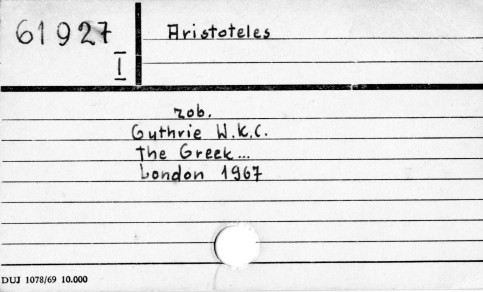 61927
I
Aristoteles
zob.
Guthrie W.K.C.
The Greek...
London 1967
DUJ 1078/69 10.000